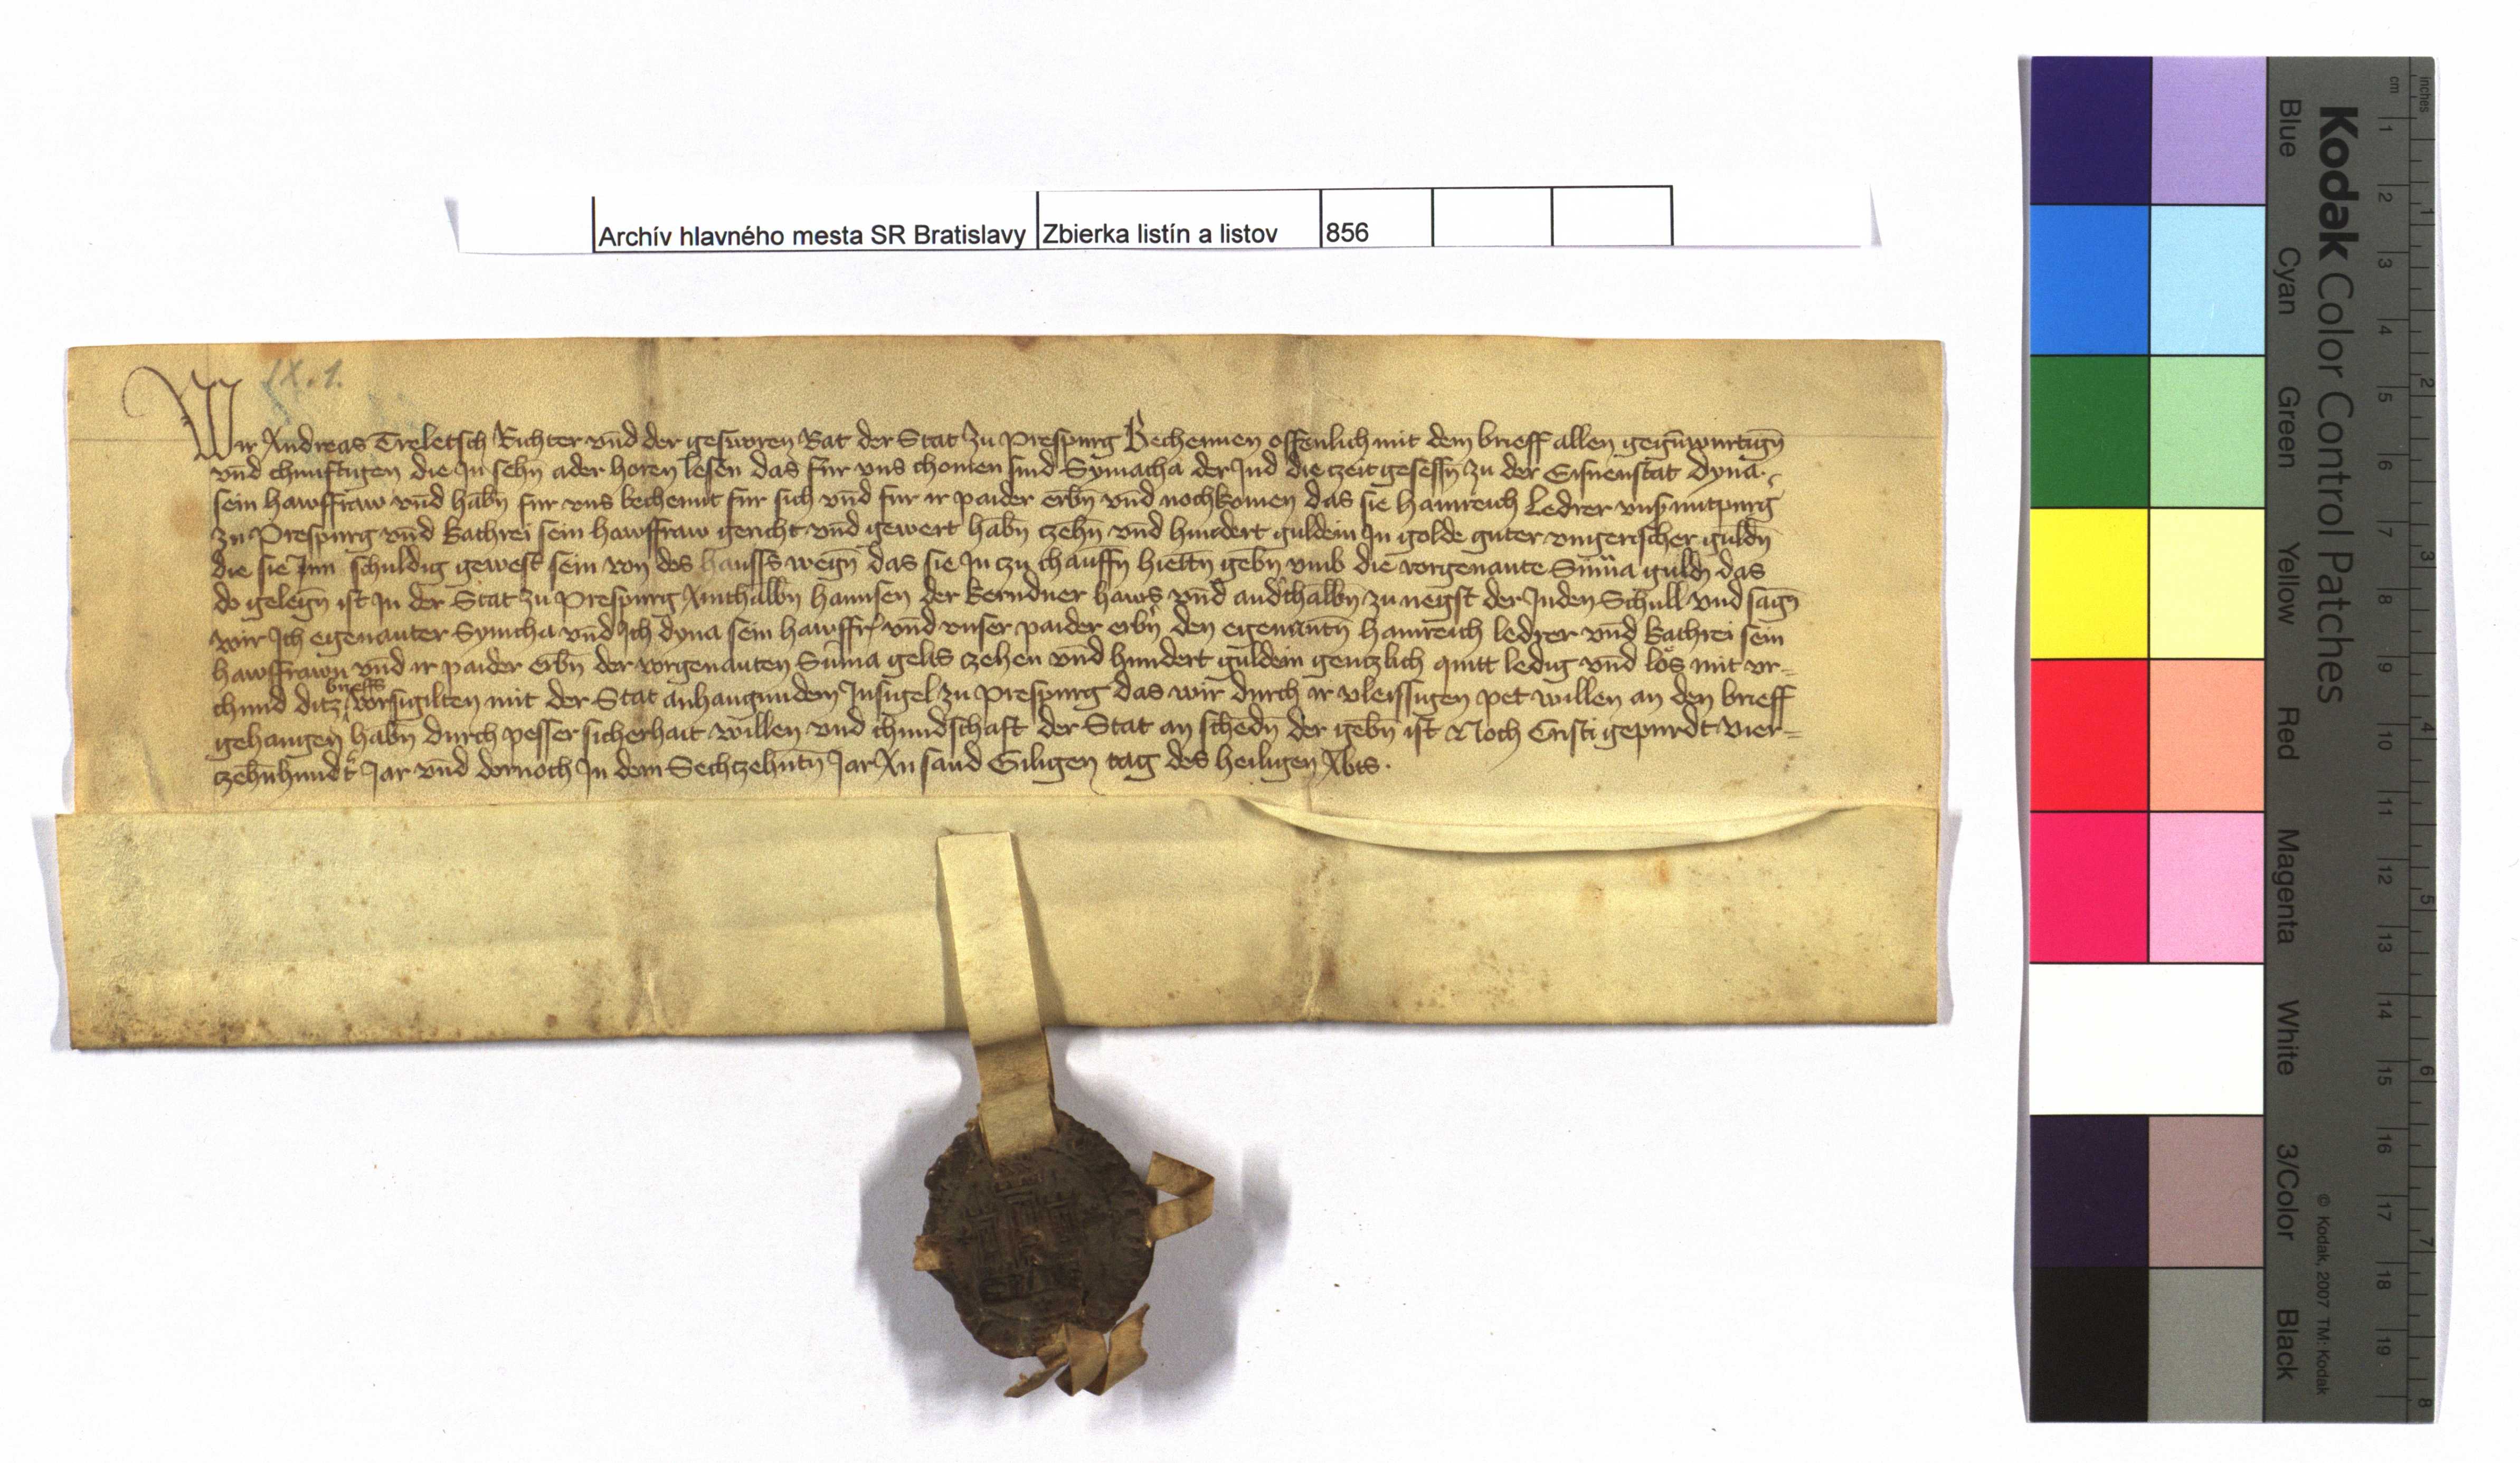 Archív hlavného mesta SR Bratislavy Zbierka listín a listov 856
IX. 1.
Wir Andreas Treletsch Richter vnd der gesworen Rat der Stat zu Prespurg Bechennen offenlich mit dem brieff allen gegũwurtigñ
vnd chunftigen die In sehn ader horen lesen das fur vns chomen sind Symacha der Jud die czeit gesessñ zu der Eisnenstat dyna
sein hawsfraw vnd habñ fur vns bechennt fur sich vnd fur ir paider erbñ vnd nochkomen das sie hainreich Ledrer mitpurg
zu Prespurg vnd kathrei sein hawsfraw gericht vnd gewert habñ zehñ vnd hundert guldein In golde guter vngerischer guldñ
die sie Inn schuldig gewest sein von des hauss wegñ das sie In czu chauffñ hiettñ gebñ vmb die vorgenante Sũma guldñ das
do gelegñ ist In der Stat zu Prespurg Ainthalbñ hannsen der kerndner haws vnd andthalbñ zu negst der Juden Schull vnd sagñ
wir Ich egenanter Symcha vnd Ich dyna sein hawsfr vnd vnser paider erbñ den egenantñ hainreich ledrer vnd kathrei sein
hawsfrawn vnd ir paider erbñ der vorgenanten Sũma gelts czehen vnd hundert guldein genczlich quitt ledig vnd los mit vr=
chund ditz brieffs vorsigilten mit der Stat anhangundem Insigel zu Prespurg das wir durch ir vleissigen pet willen an den brieff
gehangen habñ durch pesser sicherhait willen vnd chundschaft der Stat an schedñ der gebñ ist Noch Cristi gepurdt vier=
czehñhundt Jar vnd dornoch In dem Sechtzehñtñ Jar An sand Giligen tag des heiligen Abts.
Kodak Color Control Patches
Blue Cyan Green Yellow Red Magenta White 3/Color Black
© Kodak, 2007 TM: Kodak
cm 1 2 3 4 5 6 7 8 9 10 11 12 13 14 15 16 17 18 19
inches 1 2 3 4 5 6 7 8